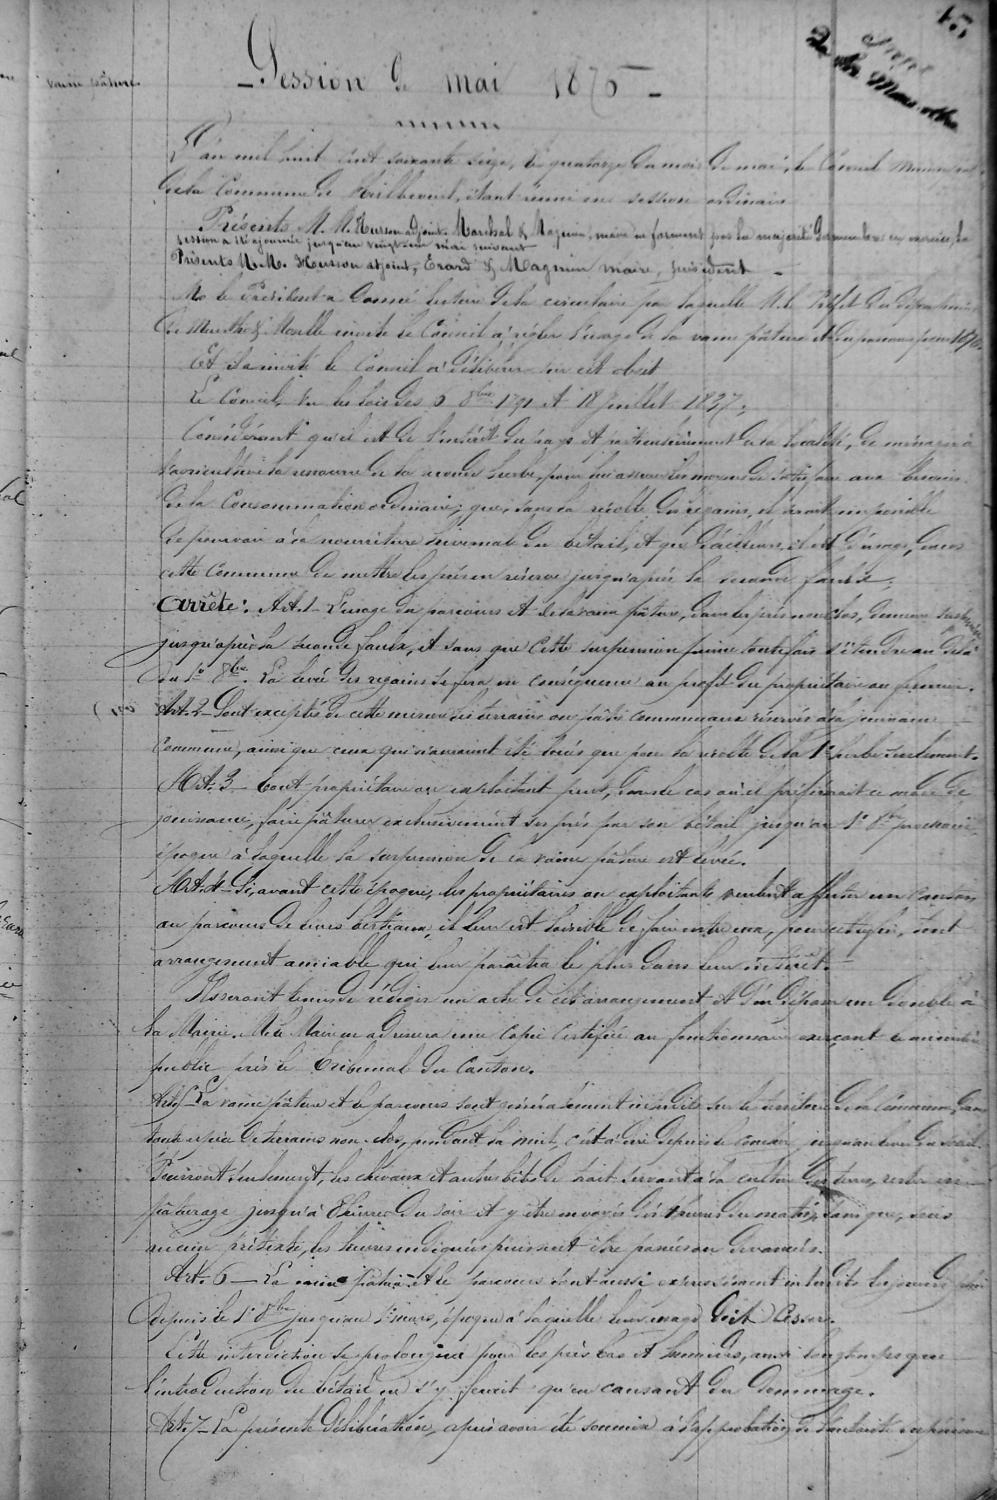 15
vaine pâture.
Session de mai 1876
L'an mil huit cent soixante seize, le quatorze du mois de mai, le Conseil Municipal
de la Commune de étant réuni en session ordinaire
Présents M. M. Husson adjoint. Marchal & Magnin, maire ne formant pas la majorité des membres en exercice, la
session a été ajournée jusqu'au vingt un mai suivant
Présents M. M. Husson adjoint, Erard & Magnin maire, président
Mr le Président a donné lecture de la circulaire par laquelle M. le Préfet du département
de Meurthe & Moselle invite le Conseil à régler l'usage de la vaine pâture et du parcours pour 1876.
Et a invité le Conseil à délibérer sur cet objet
Le Conseil, Vu les lois des 6 8bre 1791 et 18 Juillet 1837;
Considérant qu'il est de l'intérêt du pays et particulièrement de la localité, de ménager à
l'agriculture la ressource de la seconde herbe, pour lui assurer les moyens de satisfaire aux besoins
de la Consommation ordinaire; que, sans la récolte des regains, il serait impossible
de pourvoir à la nourriture hivernale du bétail, et que d'ailleurs, il est d'usage, dans
cette commune de mettre les prés en réserve jusqu'après la seconde faulx;
Arrête: Art. 1 L'usage du parcours et de la vaine pâture, dans les prés non clos, demeure suspendu
jusqu'après la seconde faulx, et sans que cette suspension puisse toutefois s'étendre au delà
du 1er 8bre. La levée des regains se fera en conséquence au profit du propriétaire ou fermier.
Art. 2 Sont exceptés de cette mesure les terrains ou pâtis communaux réservés à la jouissance
Commune, ainsi que ceux qui n'auraient été loués que pour la récolte de la 1e herbe seulement.
Art. 3 Tout propriétaire ou exploitant peut, dans le cas où il préférerait ce mode de
jouissance, faire pâturer exclusivement ses prés par son bétail jusqu'au 1er 8bre prochain,
époque à laquelle la suspension de la vaine pâture est levée.
Art. 4 Si, avant cette époque, les propriétaires ou exploitants veulent affecter un canton
au parcours de leurs bestiaux, il leur est loisible de faire entre eux, pour cet objet, tout
arrangement amiable qui leur paraîtra le plus dans leur intérêt.
Ils seront tenus de rédiger un acte de cet arrangement et d'en déposer un double à
la Mairie. M. le Maire en adressera une copie certifiée au fonctionnaire exerçant le ministère
public près le Tribunal du Canton.
Art. 5 La vaine pâture et le parcours sont généralement interdits sur le territoire de la Commune, dans
toute espèce de terrains non clos, pendant la nuit, c'est à dire depuis le coucher jusqu'au lever du soleil.
Pourront seulement, les chevaux et autres bêtes de trait servant à la culture des terres, rester en
pâturage jusqu'à heures du soir et y être envoyés dès heures du matin, sans que, sous
aucun prétexte, les heures indiquées puissent être passées ou devancées.
Art. 6 La vaine pâture et le parcours sont aussi expressément interdits
depuis le 1er 8bre jusqu'au 1er mars, époque à laquelle leur usage doit cesser.
Cette interdiction se prolongera pour les prés bas et humides, aussi longtemps que
l'introduction du bétail ne s'y ferait qu'en causant du dommage.
Art. 7 La présente délibération, après avoir été soumise à l'approbation de l'autorité supérieure